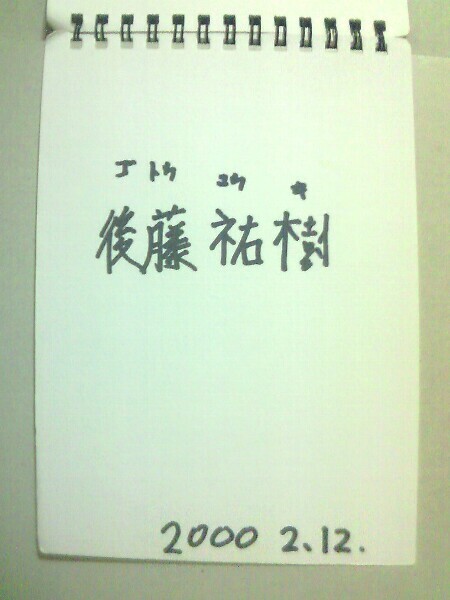 ゴトウ ユウ キ
後藤祐樹
2000 2.12.